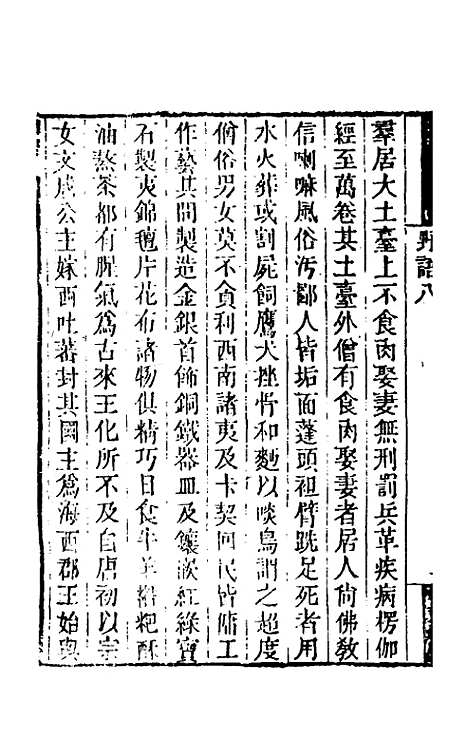 野語八
羣居大土臺上不食肉娶妻無刑罰兵革疾病楞伽
經至萬卷其土臺外僧有食肉娶妻者居人尙佛敎
信喇嘛風俗汚鄙人皆垢面蓬頭袒臂跣足死者用
水火葬或割屍飼鷹犬挫骨和麪以啖鳥謂之超度
僧俗男女莫不貪利西南諸夷及卡契回民皆傭工
作藝其間製造金銀首飾銅鐵器皿及鑲嵌紅綠寶
石製夷錦氊片花布諸物俱精巧日食牛羊糌粑酥
油熬茶都有腥氣爲古來王化所不及自唐初以宗
女文成公主嫁西吐蕃封其國主爲海西郡王始與